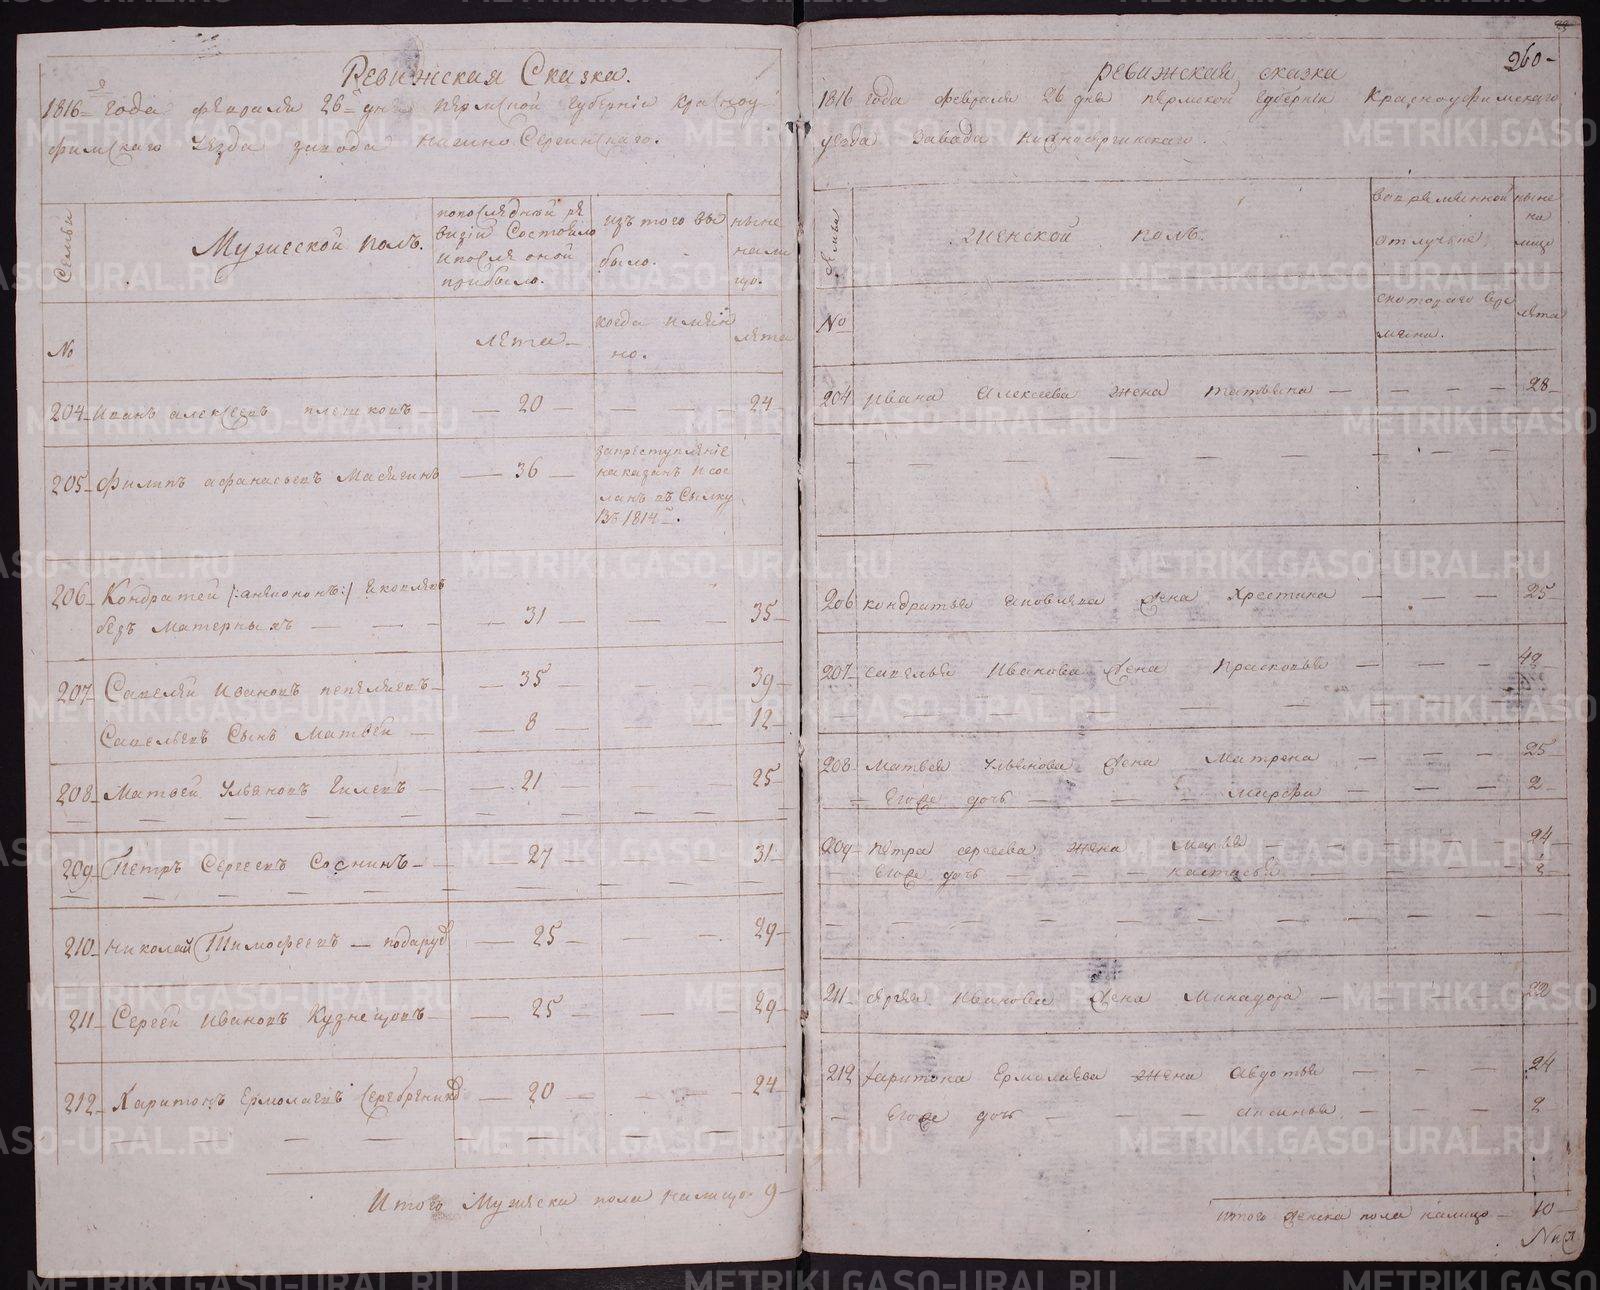 Ревижская Сказка.
1816 года февраля 26 дня пермской губерніи красноу-
фимскаго уезда завода нижно Сергинскаго.
Семьи
Мужеской полъ.
попоследней ре
визіи Состояло
ипосле оной
прибыло.
изъ того вы
было.
ныне
нали
цо.
№
лета
когда имян
но.
лета
204 Иванъ алексеевъ плешковъ — 20 — — — 24
205 Филипъ афанасьевъ — 36 —
запреступленіе
наказанъ исос
ланъ въ Ссылку
въ 1814.
206 Кондратей Яковлевъ
безъ Матерныхъ — — — 31 — — 35
207 Савелей Ивановъ пепеляевъ — 35 — — 39
Савельевъ Сынъ Матвей — 8 — — 12
208 Матвей Ульяновъ Гилевъ — 21 — — 25
209 Петръ Сергеевъ Соснинъ — 27 — — 31
210 Николай Тимофеевъ — 25 — — 29
211 Сергей Ивановъ Кузнецовъ — 25 — — 29
212 Харитонъ Ермолаевъ Серебрениковъ — 20 — — 24
Итого Мужеска пола налицо 9
260
ревижская сказка
1816 года февраля 26 дня пермской губерніи Красноуфимскаго
уезда Завода нижносергинскаго
Семьи
женской полъ.
вовременной
отлучке
ныне
на
лицо
№
скотораго вре
мяни.
лета
204 Ивана Алексеева жена татьяна — — — — 28
206 кондратья яковлева жена Хрестина — — — 25
207 савелья Иванова жена прасковья — — — 42
208 Матвея Ульянова жена Матрена — — — 25
Егоже дочь — — — Марфа — — — 2
209 петра сергеева жена Марья — — — 24
Егоже дочь — — — настасья — — — 2
211 сергея Иванова жена Минадора — — — 22
212 харитона Ермолаева жена авдотья — — — 24
Егоже дочь — — — аксинья — — — 2
итого женска пола налицо 10
METRIKI.GASO-URAL.RU